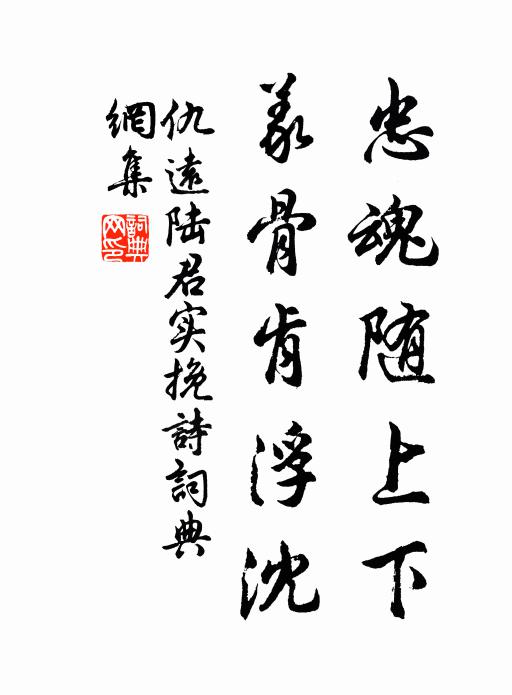 忠魂随上下
義骨肯浮沈
仇遠陆君实挽詩詞典
網集
詞典网印